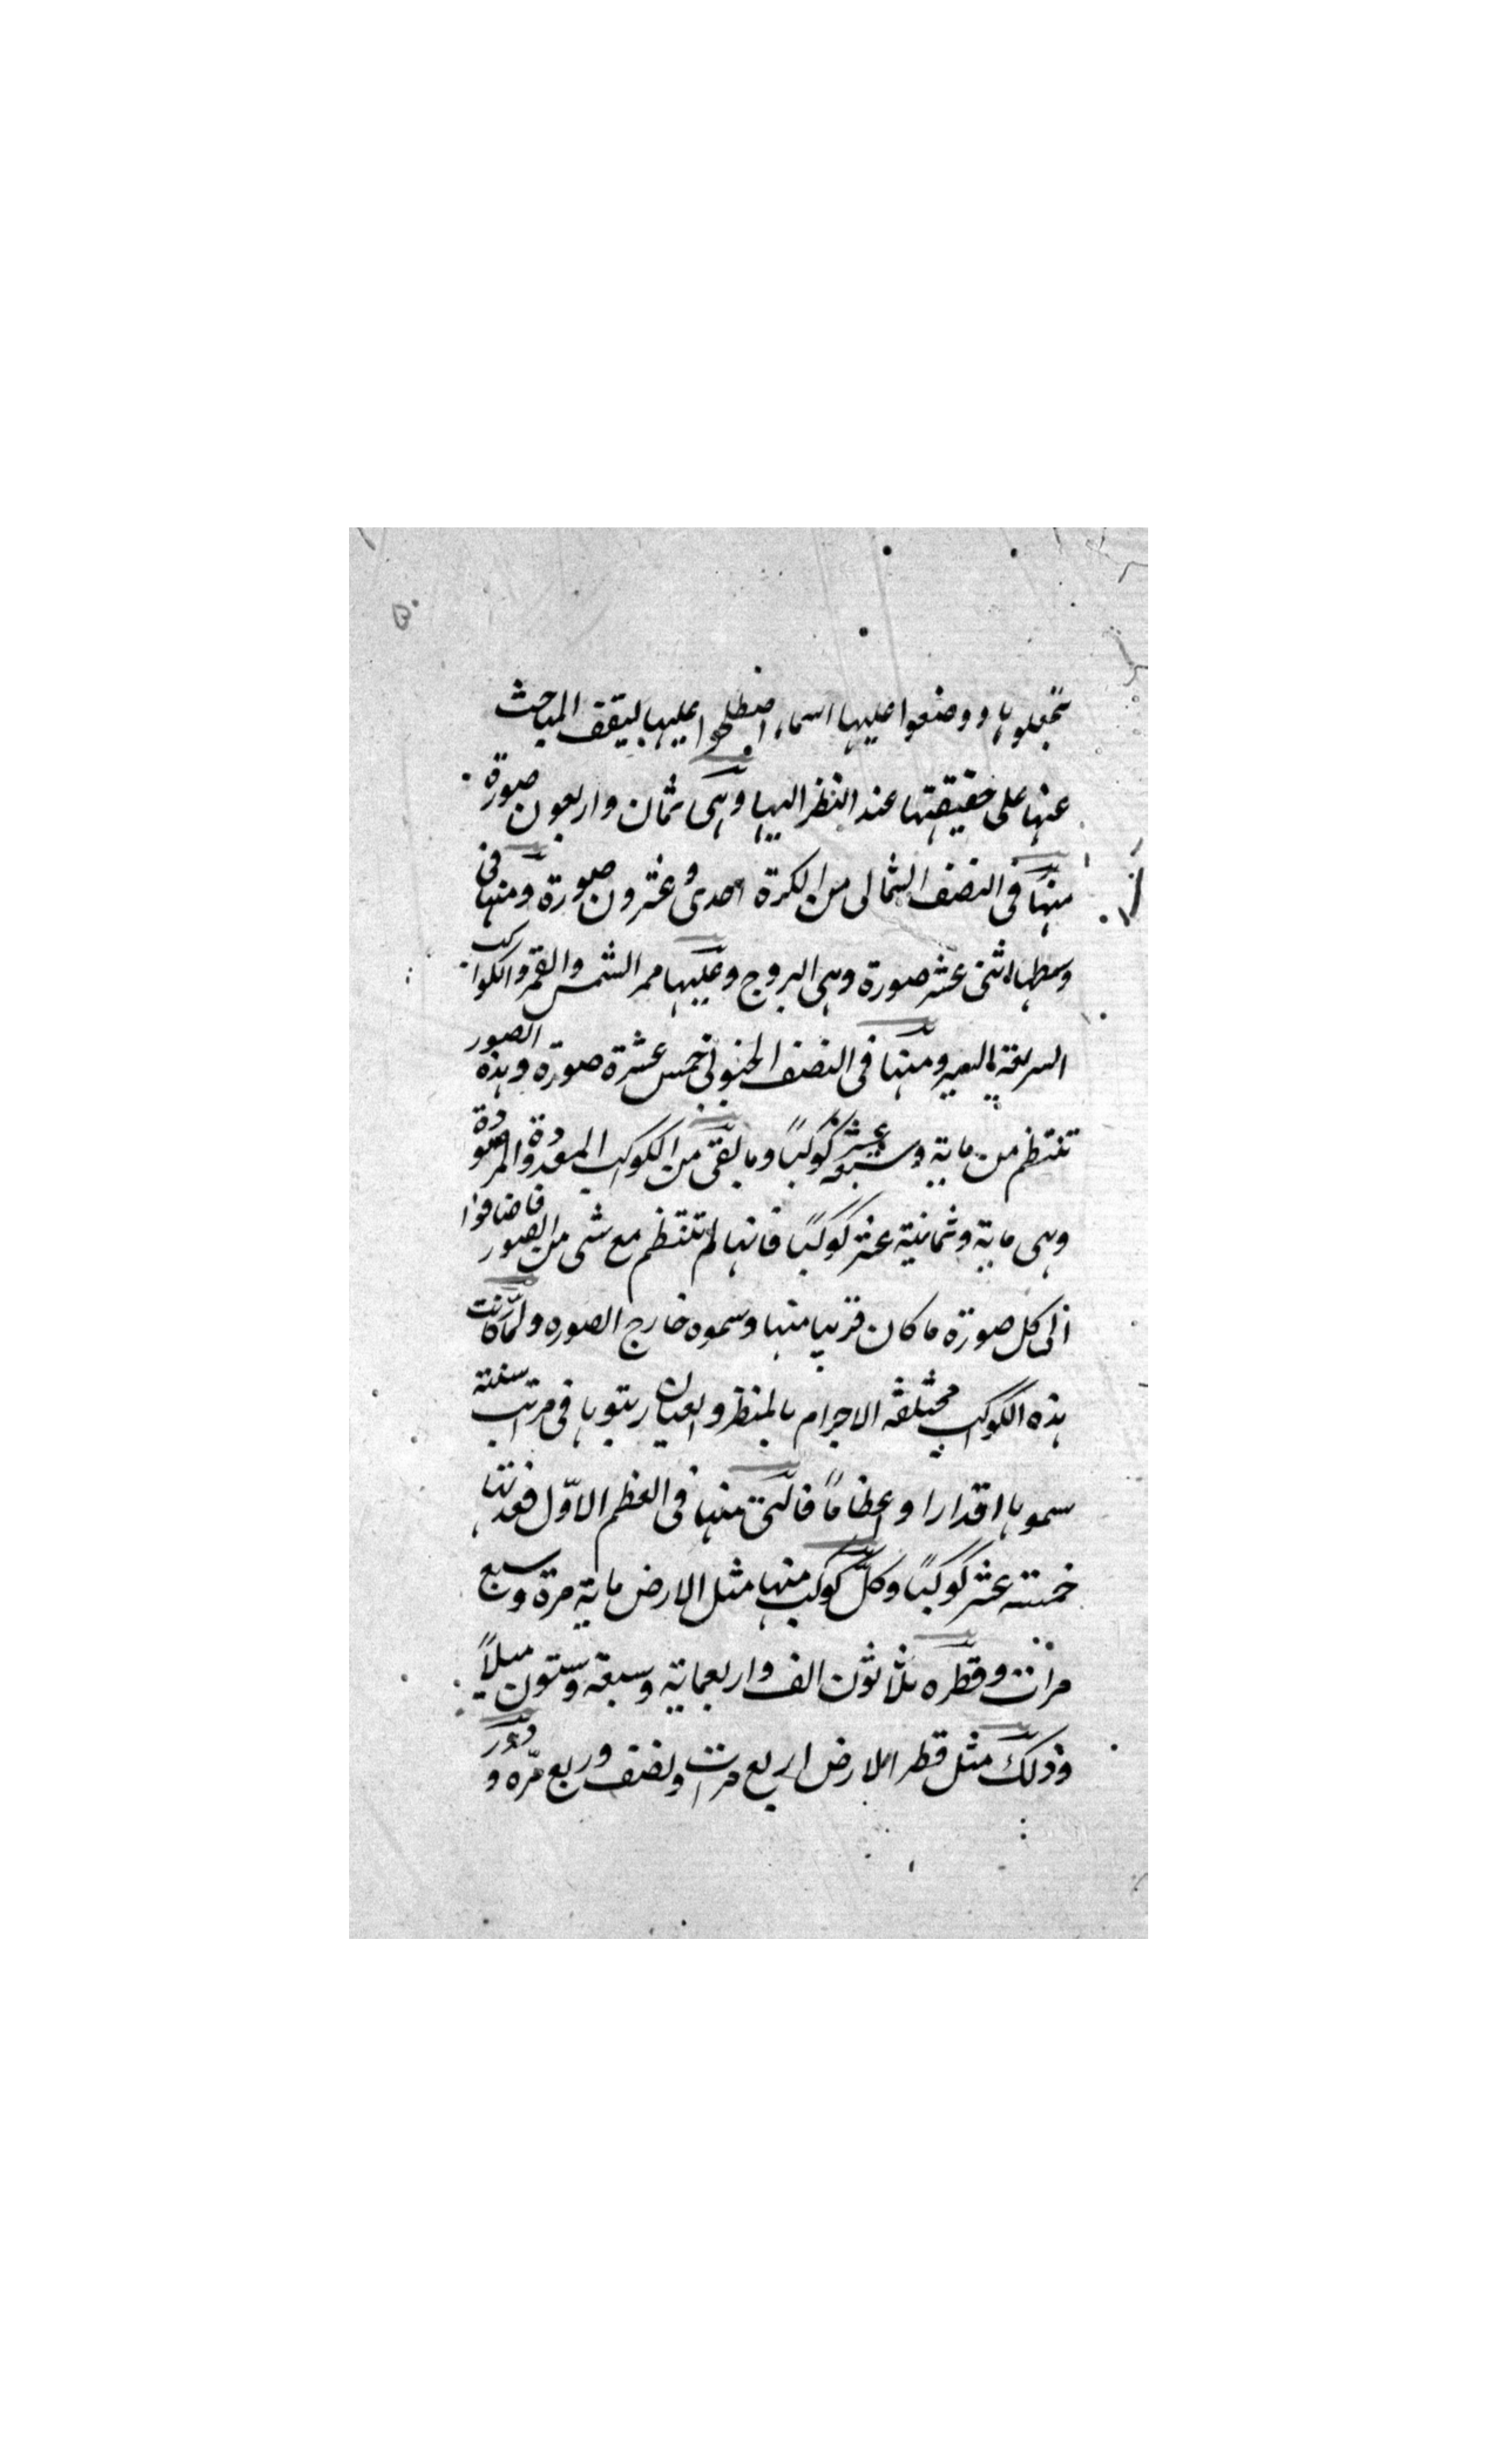 تخيلوها ووضعوا عليها اسماء اصطلحوا عليها ليقف المباحث
عنها على حقيقتها عند النظر اليها وهى ثمان واربعون صورة
منها فى النصف الشمالى من الكرة احدى وعشرون صورة ومنها فى
وسطها اثنى عشر صورة وهى البروج وعليها ممر الشمس والقمر والكواكب
السريعة السير ومنها فى النصف الجنوبى خمس عشرة صورة وهذه الصور
تنتظم من ماية وسبعة عشر كوكبًا وما بقى من الكوكب المعدودة المرصودة
وهى ماية وثمانية عشر كوكبًا فانها لم تنتظم مع شى من الصور فاضافوا
الى كل صورة ما كان قريبا منها وسموه خارج الصوره ولمّا كانت
هذه الكواكب مختلفة الاجرام بالمنظر والعيان رتبوها فى مراتب ستة
سموها اقدارا واعظامًا فالتى منها فى العظم الاوّل فعدتها
خمسة عشر كوكبًا وكلّ كوكب منها مثل الارض ماية مرة وسبع
مرات وقطره ثلاثون الف واربعماية وسبعة وستون ميلاً
وذلك مثل قطر الارض اربع مرات ونصف وربع مرّه و دور